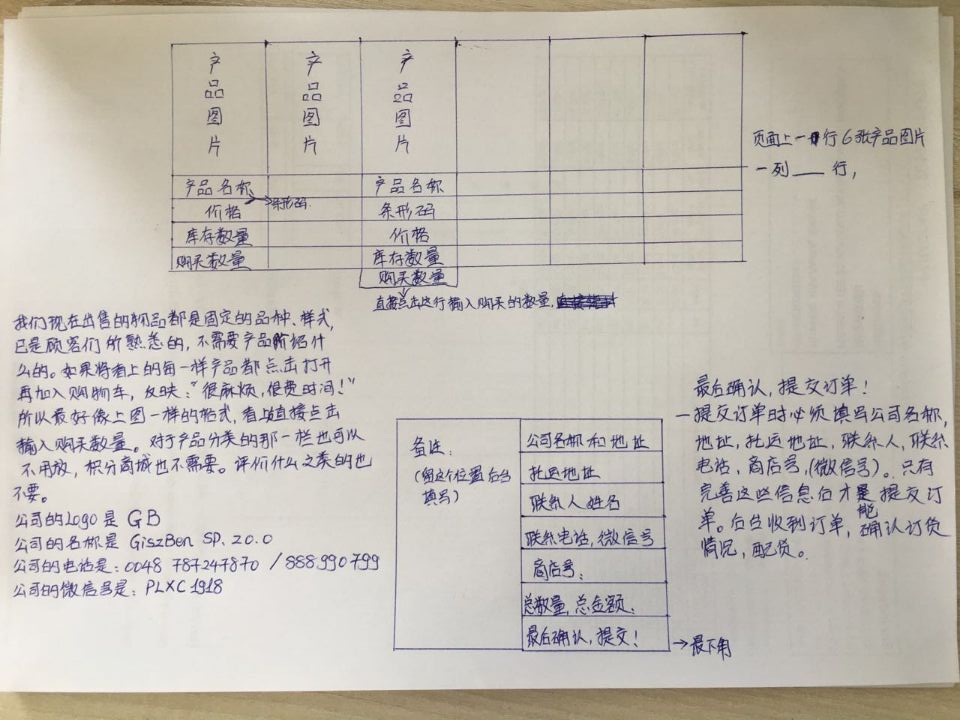 产品图片 产品图片 产品图片
页面上一行6张产品图片
一列___行,
产品名称 产品名称
价格 条形码 条形码
库存数量 价格
购买数量 库存数量
购买数量
直接点击这行输入购买的数量,
我们现在出售的物品都是固定的品种、样式,
已是顾客们所熟悉的,不需要产品介绍什
么的。如果将看上的每一样产品都点击打开
再加入购物车,反映:“很麻烦,很费时间!”
所以最好像上图一样的格式,看上直接点击
输入购买数量。对于产品分类的那一栏也可以
不用放,积分商城也不需要。评价什么之类的也
不要。
公司的Logo是 GB
公司的名称是 GiszBen SP. zo.o
公司的电话是:0048 787247870 / 888990799
公司的微信号是:PLXC1918
备注:
(留这个位置后台
填写)
公司名称和地址
托运地址
联系人姓名
联系电话,微信号
商店号:
总数量,总金额:
最后确认,提交!
→最下角
最后确认,提交订单!
一提交订单时必须填写公司名称,
地址,托运地址,联系人,联系
电话,商店号,(微信号)。只有
完善这些信息后才能提交订
单。后台收到订单,确认订货
情况,配货。